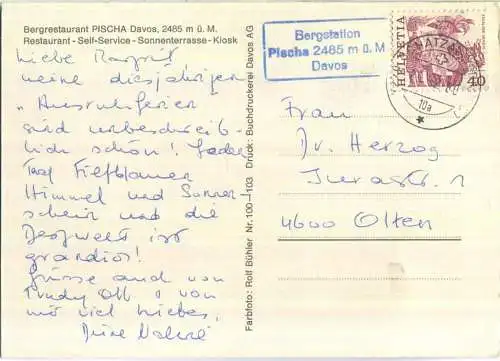 Bergrestaurant PISCHA Davos, 2485 m ü. M.
Restaurant - Self-Service - Sonnenterrasse - Kiosk
Liebe Margrit
meine diesjährigen
"Ausruhferien
sind unbeschreib-
lich schön! Jeden
Tag tiefblauer
Himmel und Sonnen-
schein und die
Bergwelt ist
grandios!
Grüsse auch von
Trudy Ott u von
mir viel Liebes,
Deine
Farbfoto: Rolf Bühler Nr. 100-1103 Druck: Buchdruckerei Davos AG
Bergstation
Pischa 2485 m ü. M
Davos
HELVETIA
40
10a
Frau
Dr. Herzog
Jurastr. 1
4600 Olten